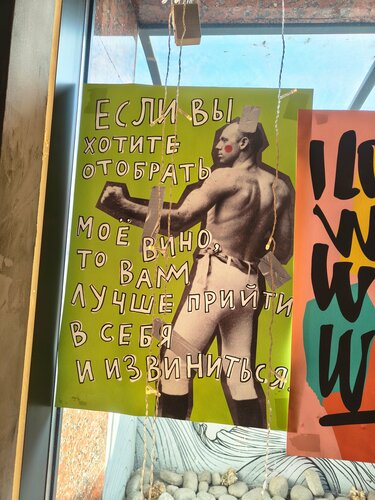 ЕСЛИ ВЫ
ХОТИТЕ
ОТОБРАТЬ
МОЁ ВИНО,
ТО ВАМ
ЛУЧШЕ ПРИЙТИ
В СЕБЯ
И ИЗВИНИТЬСЯ